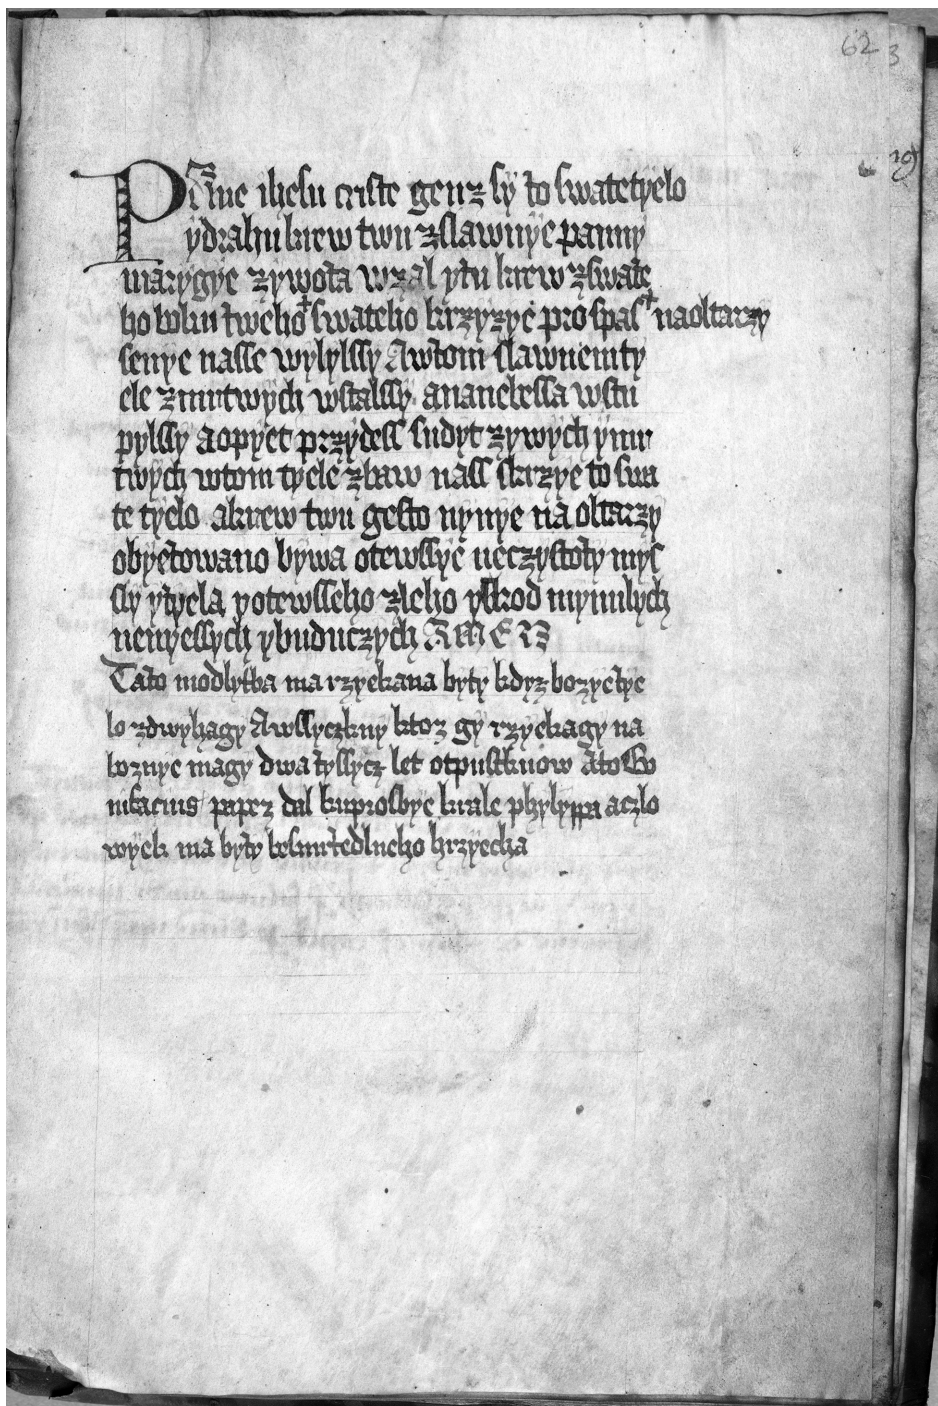 62 3
19
Pāne ihesu criste genz sy to swatetyelo
ydrahu krew twu zslawnye panny
marygye zywota wzal ytu krew zswate
ho boku tweho swateho krzyzye pro spas naoltarzy
senye nasse wylylssy Awtom slawnemty
ele zmrtwych wstalssy ananebessa wstu
pylssy aopyet przydess sudyt zywych ymr
twych wtom tyele zbaw nass skrzye to swa
te tyelo akrew twu gesto nynye na oltarzy
obyetowano bywa otewssye neczystoty mys
sly ytyela yotewsseho zleho yskod mynulych
nenyessych ybuduczych AMEN
Tato modlytba ma rzyekana byty kdyz bozyetye
lo zdwyhagy Awssyczkny ktoz gy rzyekagy na
boznye magy dwa tyssycz let otpustkuow Ato Bo
nifacius papez dal kuprosbye krale phylyppa aczlo
wyek ma byty bezsmrtedlneho hrzyecha